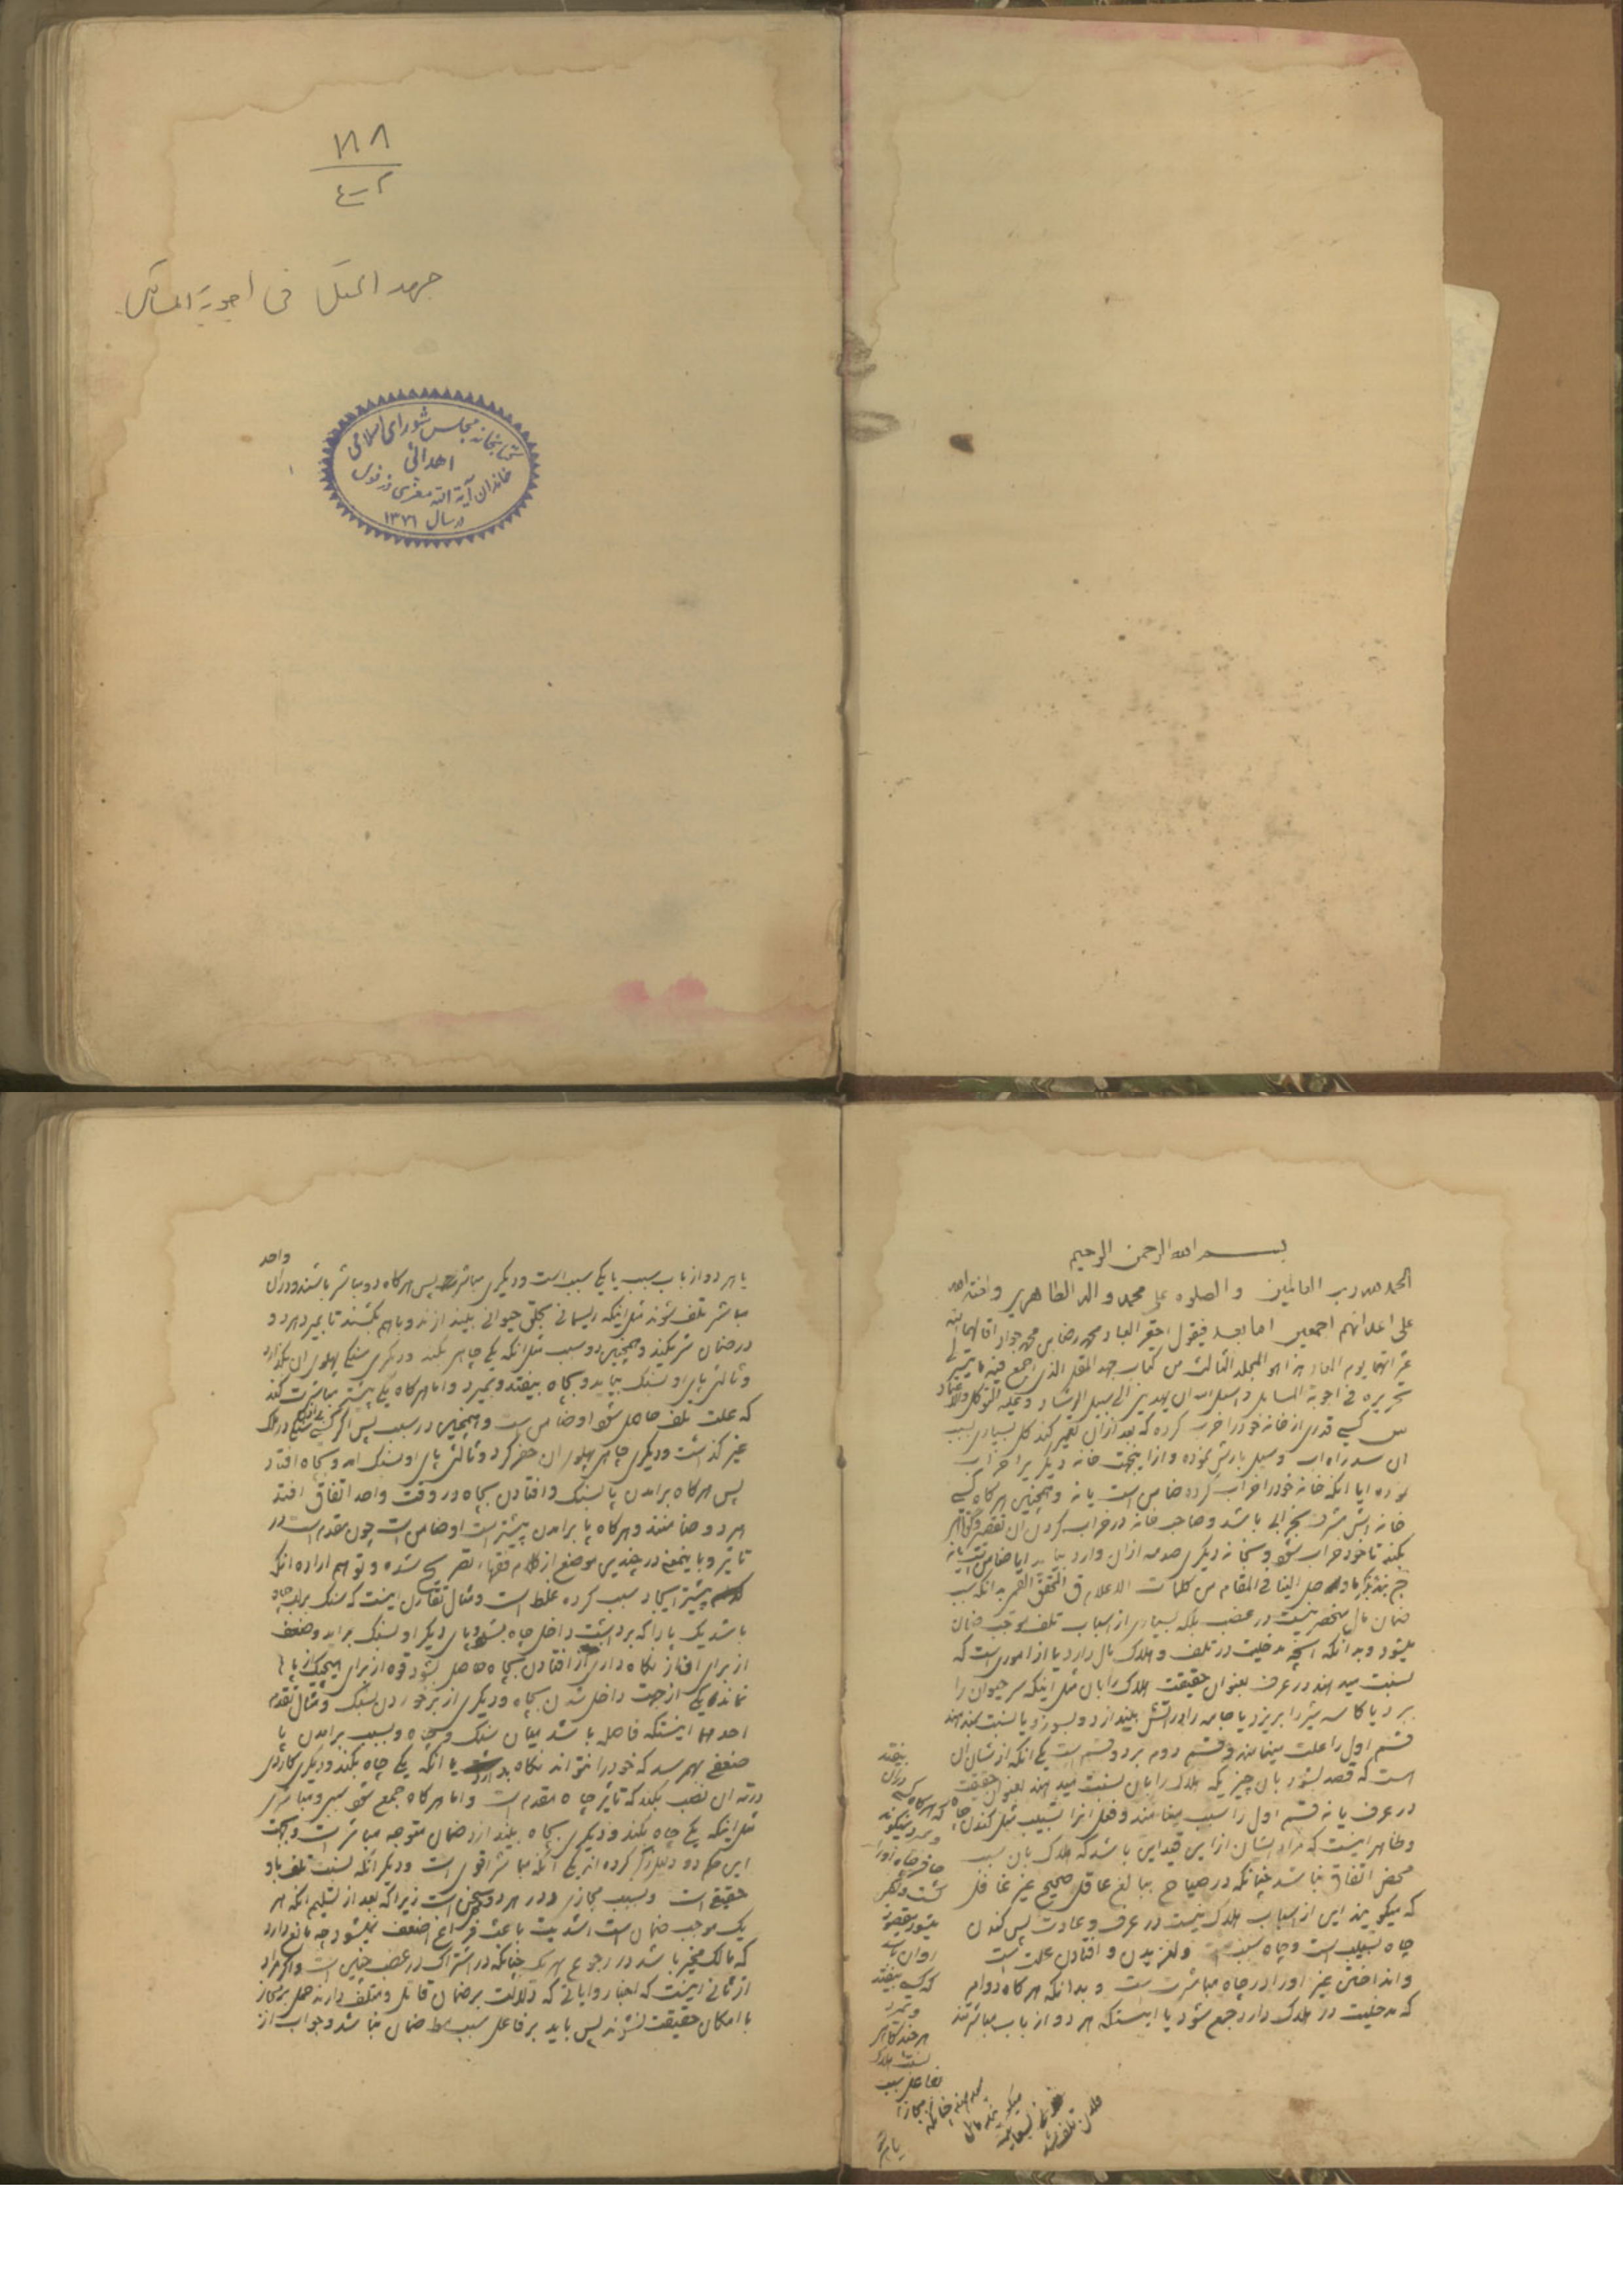 ١٨٨
٤-٢
جهد المقل فی اجوبة المسائل
کتابخانه مجلس شورای اسلامی
اهدائی
خاندان آیة الله معزی دزفولی
در سال ١٣٧١
بسم الله الرحمن الرحیم
الحمد لله رب العالمین والصلوه علی محمد واله الطاهرین ولعنة الله
علی اعدائهم اجمعین اما بعد فیقول احقر العباد محمد رضا بن محمد جواد اقالهما الله
یوم المعاد هذا هو المجلد الثالث من کتاب جهد المقل الذی اجمع فیه ما تیسر لی
تحریره فی اجوبة المسایل واسئل الله ان یهدینی الی سبیل الرشاد وعلیه التوکل والاعتماد
س کسی قدری از خانه خود را خراب کرده که بعد از آن تعمیر کند کل بسیاری بسبب
ان سد راه اب وسیل بارش نموده و از اینجهت خانه دیگریرا خراب
نموده ایا انکه خانه خود را خراب کرده ضامن است یا نه وهمچنین هرگاه کسی
خانه اش مشرف بخرابی باشد وصاحب خانه در خراب کردن ان تقصیر وکوتاهی
بکند تا خود خراب شود وبخانه دیگری صدمه از ان وارد بیاید ایا ضامن است یا نه
ضمان مال منحصر نیست در غصب بلکه بسیاری از اسباب تلف موجب ضمان
میشود وبدانکه انچه مدخلیت در تلف وهلاک مال دارد یا از اموری است که
نسبت میدهند در عرف بعنوان حقیقت هلاک را بان مثل اینکه سر حیوان را
ببرد یا کاسه شیر را بریزد یا جامه را در اتش بیندازد وبسوزد یا نسبت نمیدهند
قسم اول را علت مینامند وقسم دوم بر دو قسم است یکی انکه از شان ان
است که قصد بشود بان چیزیکه هلاک را بان نسبت میدهند بعنوان حقیقت
در عرف یا نه قسم اول را سبب مینامند وفعل انرا تسبیب مثل کندن چاه
وظاهر اینست که مراد ایشان از این قید این باشد که هلاک بان سبب
محض اتفاق نباشد چنانکه در صیاح ببالغ عاقل صحیح غیر غافل
که میگویند این از اسباب هلاک نیست در عرف وعادت پس کندن
چاه تسبیب است وچاه سبب است ولغزیدن وافتادن علت است
وانداختن غیر او را در چاه مباشرت است وبدانکه هرگاه دو امر
که مدخلیت در هلاک دارد جمع شود یا اینستکه هر دو از باب مباشرتند
بیفتد
در ان
که هرگاه کسی
که کسی بیفتد
وبمیرد
هرچند ظاهر
نسبت هلاک
بفاعل سبب
یا هر دو از باب سبب یا یکی سبب است ودیگری مباشر پس هرگاه دو مباشر باشند ودر ان واحد
مباشر تلف شوند مثل اینکه ریسمانی بحلق حیوانی بیندازند وباهم بکشند تا بمیرد هر دو
در ضمان شریکند وهمچنین دو سبب مثل انکه یکی چاهی بکند ودیگری سنگی پهلوی ان بگذارد
وثالثی پای او بسنگ بیاید وبچاه بیفتد وبمیرد واما هرگاه یکی پیشتر مباشرت کند
که علت تلف حاصل شود او ضامن است وهمچنین در سبب پس اگر کسی سنگی در ملک
غیر گذاشت ودیگری چاهی پهلوی ان حفر کرد وثالثی پای او بسنگ امد وبچاه افتاد
پس هرگاه برامدن پا بسنگ وافتادن بچاه در وقت واحد اتفاق افتد
هر دو ضامنند وهرگاه پا برامدن پیشتر است او ضامن است چون مقدم است در
تاثیر وباینمعنی در چندین موضع از کلام فقهاء تصریح شده وتوهم اراده انکه
پیشتر ایجاد سبب کرده غلط است ومثال تقارن اینست که سنگ بر لب چاه
باشد یک پا را که برداشت داخل چاه بشود وپای دیگر او بسنگ براید وضعف
از برای او از نگاه داری از افتادن بچاه حاصل بشود وقوه از برای هیچیک از پاها
نمانده یکی از جهت داخل شدن بچاه ودیگری از برخوردن بسنگ ومثال تقدم
احدهما اینستکه فاصله باشد میان سنگ وچاه وبسبب برامدن پا
ضعفی بهم رسد که خود را نتواند نگاه بدارد یا انکه یکی چاه بکند ودیگری کاردی
در ته ان نصب بکند که تاثیر چاه مقدم است واما هرگاه جمع شود سببی ومباشری
مثل اینکه یکی چاه بکند ودیگری بچاه بیندازد ضمان متوجه مباشر است وبجهت
این حکم دو دلیل ذکر کرده اند یکی انکه مباشر اقوی است ودیگر انکه نسبت تلف باو
حقیقی است وبسبب مجازی ودر هر دو سخن است زیرا که بعد از تسلیم انکه هر
یک موجب ضمان است اشدیت باعث فراغ اضعف نمیشود چه مانع دارد
که مالک مخیر باشد در رجوع بهر یک چنانکه در اشتراک در غصب چنین است واگر مراد
از ثانی اینست که اخبار وروایاتی که دلالت بر ضمان قاتل ومتلف دارند حمل بر مجاز
با امکان حقیقت نشوند پس باید بر فاعل سبب فقط ضمان نباشد وجواب از